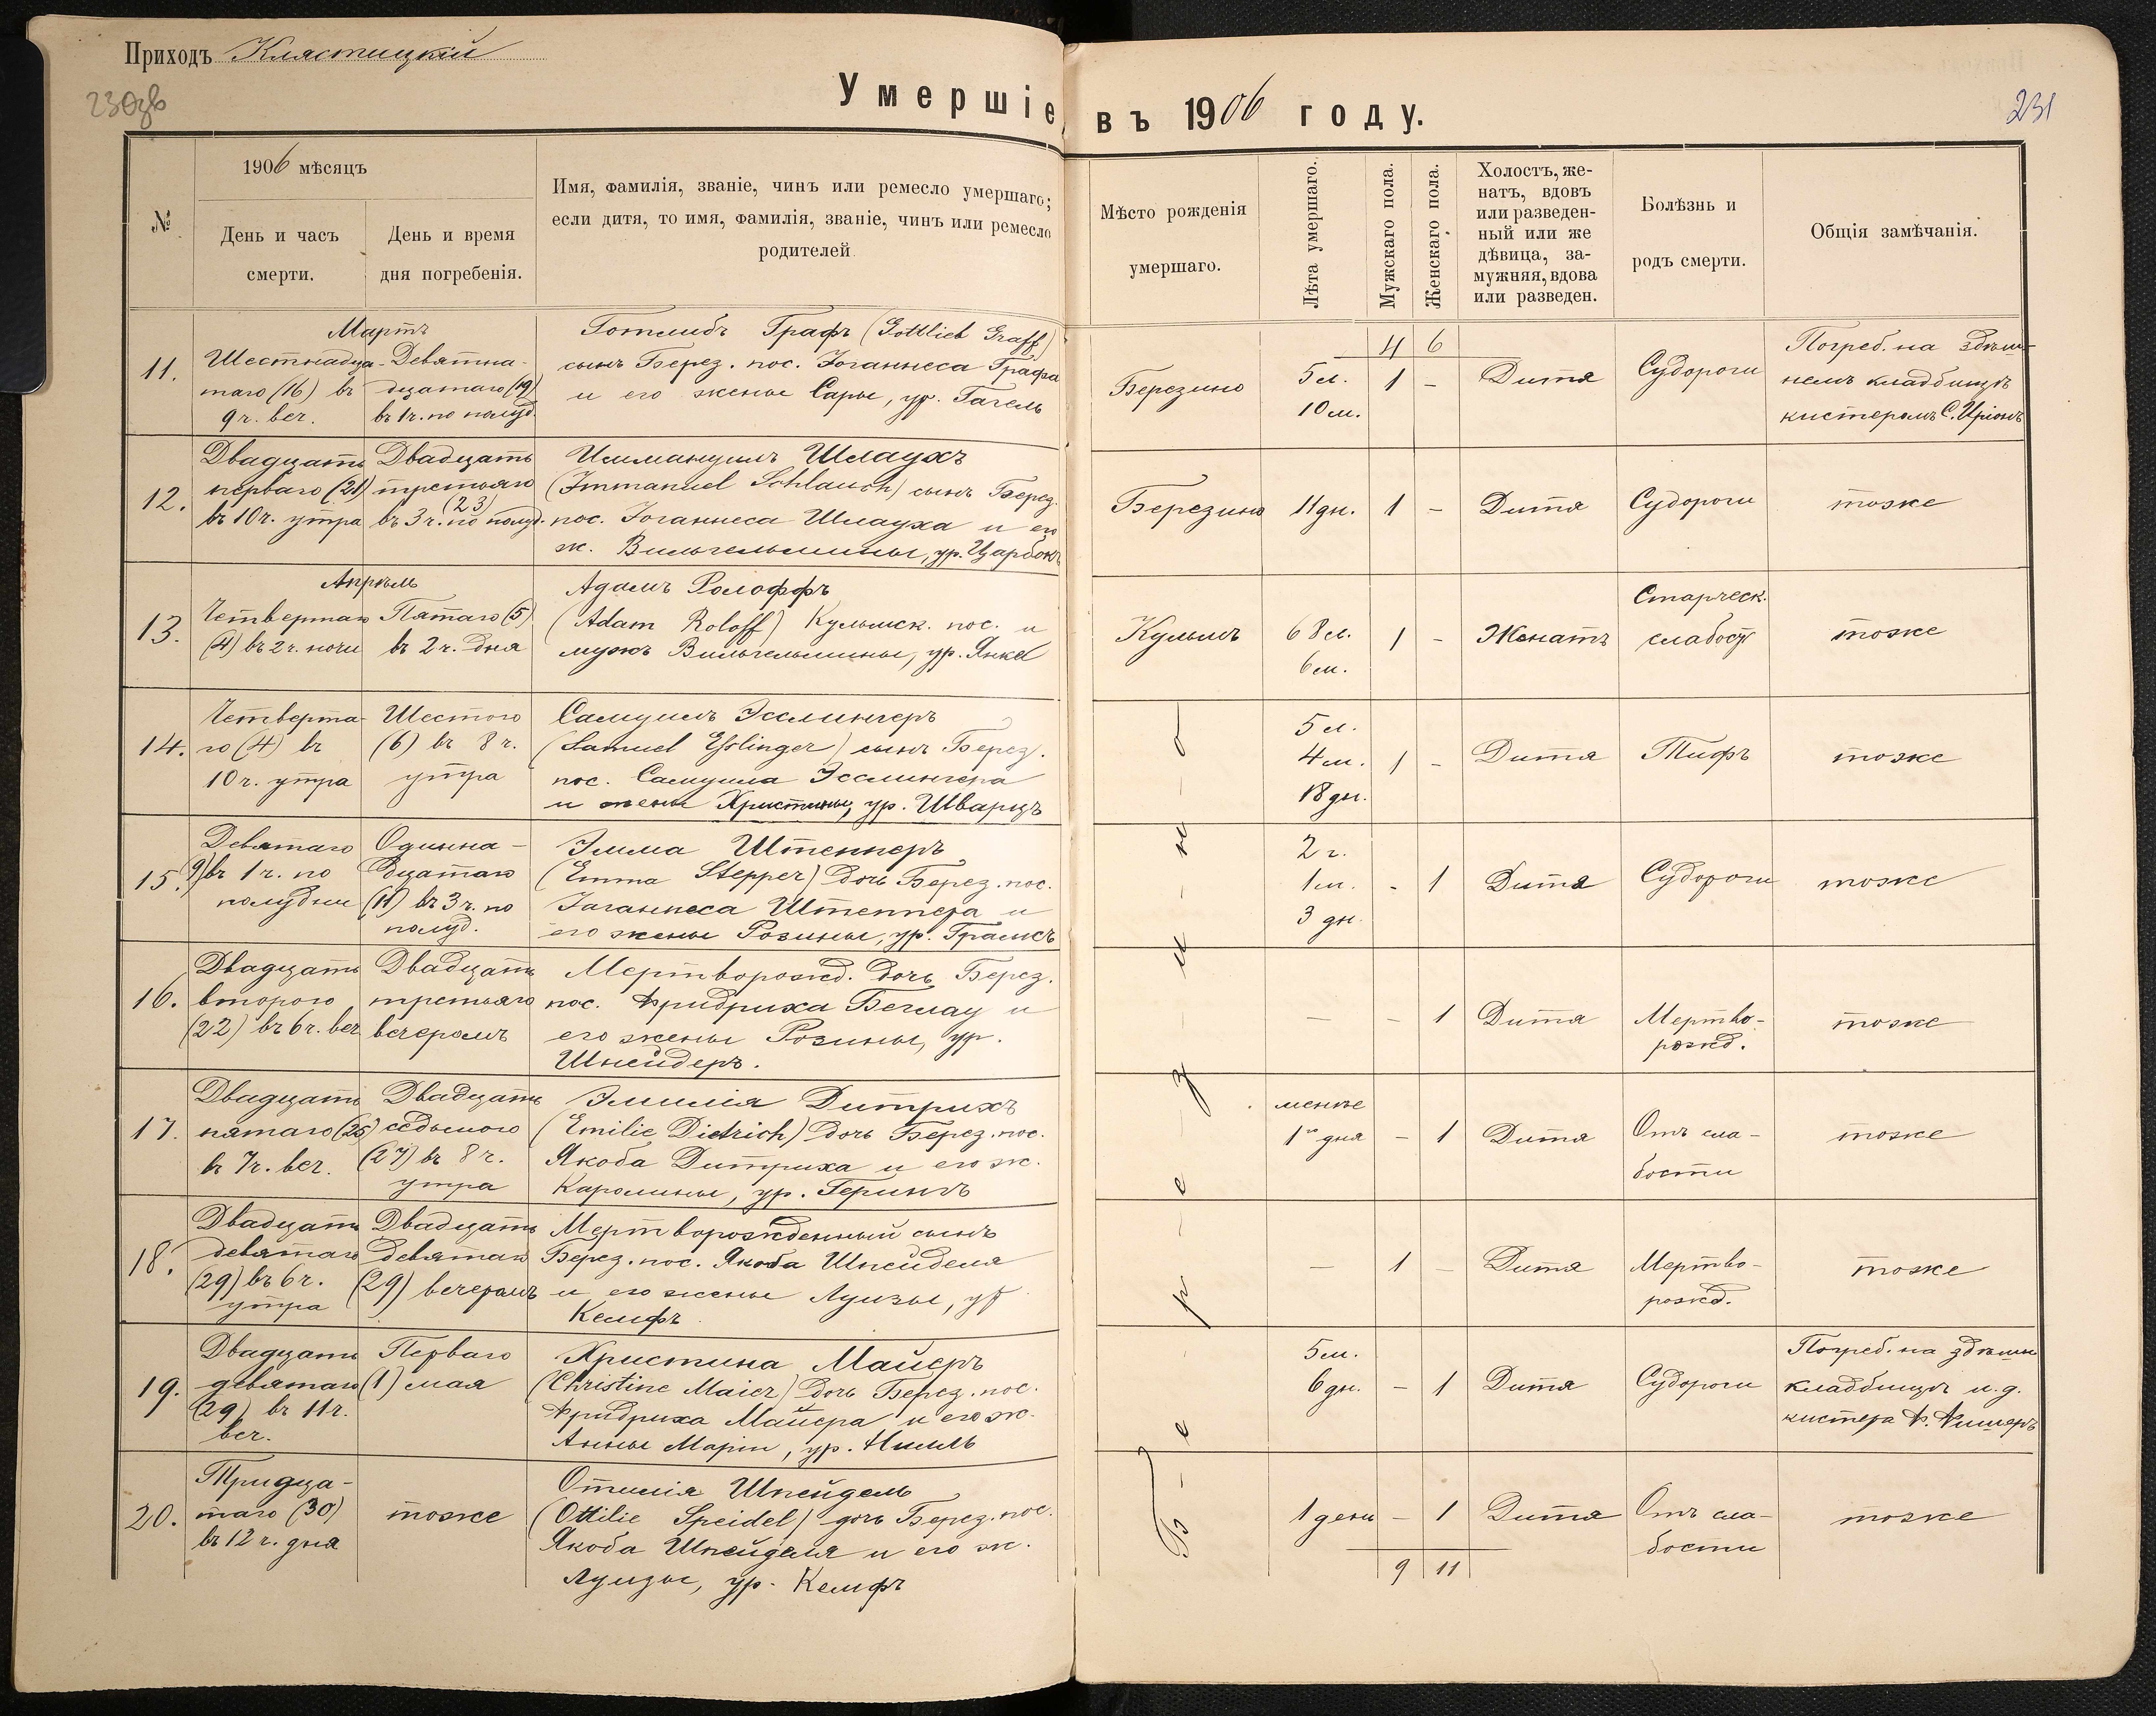 Приходъ Клястицкій
230об
Умершіе въ 1906 году.
231
№
1906 мѣсяцъ
День и часъ
смерти.
День и время
дня погребенія.
Имя, фамилія, званіе, чинъ или ремесло умершаго;
если дитя, то имя, фамилія, званіе, чинъ или ремесло
родителей
Мѣсто рожденія
умершаго.
Лѣта умершаго.
Мужскаго пола.
Женскаго пола.
Холостъ, же-
натъ, вдовъ
или разведен-
ный или же
дѣвица, за-
мужняя, вдова
или разведен.
Болѣзнь и
родъ смерти.
Общія замѣчанія.
4 6
Мартъ
11.
Шестнадца-
таго (16) въ
9 ч. веч.
Девятна-
дцатаго (19)
въ 1 ч. по полуд.
Готлибъ Графъ (Gottlieb Graff)
сынъ Берез. пос. Іоганнеса Графа
и его жены Сары, ур. Гагель
Березино
5 л.
10 м.
1 -
Дитя
Судороги
Погреб. на здѣш-
немъ кладбищѣ
кистеромъ С. Иріонъ
12.
Двадцать
перваго (21)
въ 10 ч. утра
Двадцать
третьяго
(23)
въ 3 ч. по полуд.
Иммануилъ Шлаухъ
(Immanuel Schlauch) сынъ Берез.
пос. Іоганнеса Шлауха и его
ж. Вильгельмины, ур. Царбокъ
Березино
11 дн.
1 -
Дитя
Судороги
тоже
Апрѣль
13.
Четвертаго
(4) въ 2 ч. ночи
Пятаго (5)
въ 2 ч. дня
Адамъ Ролоффъ
(Adam Roloff) Кульмск. пос. и
мужъ Вильгельмины, ур. Янке
Кульмъ
68 л.
6 м.
1 -
Женатъ
Старческ.
слабость
тоже
14.
Четверта-
го (4) въ
10 ч. утра
Шестого
(6) въ 8 ч.
утра
Самуилъ Эсслингеръ
(Samuel Eßlinger) сынъ Берез.
пос. Самуила Эсслингера
и жены Христины, ур. Шварцъ
5 л.
4 м.
18 дн.
1 -
Дитя
Тифъ
тоже
15.
Девятаго
(9) въ 1 ч. по
полудни
Одинна-
дцатаго
(11) въ 3 ч. по
полуд.
Эмма Штепперъ
(Emma Stepper) дочь Берез. пос.
Іоганнеса Штеппера и
его жены Розины, ур. Грамсъ
2 г.
1 м.
3 дн.
- 1
Дитя
Судороги
тоже
16.
Двадцать
второго
(22) въ 6 ч. веч
Двадцать
третьяго
вечеромъ
Мертворожд. дочь Берез.
пос. Фридриха Беглау и
его жены Розины, ур.
Шнейдеръ.
—
- 1
Дитя
Мертво-
рожд.
тоже
17.
Двадцать
пятаго (25)
въ 7 ч. веч.
Двадцать
седьмого
(27) въ 8 ч.
утра
Эмилія Дитрихъ
(Emilie Dietrich) дочь Берез. пос.
Якоба Дитриха и его ж.
Каролины, ур. Герингъ
менѣе
1го дня
- 1
Дитя
Отъ сла-
бости
тоже
18.
Двадцать
девятаго
(29) въ 6 ч.
утра
Двадцать
девятаго
(29) вечеромъ
Мертворожденный сынъ
Берез. пос. Якоба Шпейделя
и его жены Луизы, ур
Кемфъ
—
1 -
Дитя
Мертво-
рожд.
тоже
19.
Двадцать
девятаго
(29) въ 11 ч.
веч.
Перваго
(1) мая
Христина Майеръ
(Christine Maier) дочь Берез. пос.
Фридриха Майера и его ж.
Анны Маріи, ур. Нилль
5 м.
6 дн.
- 1
Дитя
Судороги
Погреб. на здѣшн
кладбищѣ и. д.
кистера Ф. Фишеръ
20.
Тридца-
таго (30)
въ 12 ч. дня
тоже
Отилія Шпейдель
(Ottilie Speidel) дочь Берез. пос.
Якоба Шпейделя и его ж.
Луизы, ур. Кемфъ
Б-е-р-е-з-и-н-о
1 день
- 1
Дитя
Отъ сла-
бости
тоже
9 11